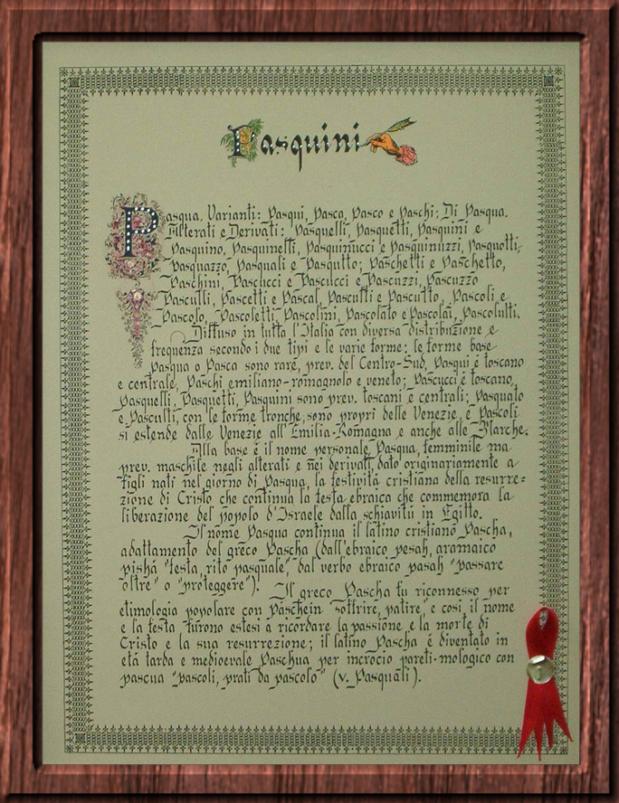 Pasquini
Pasqua. Varianti: Pasqui, Pasca, Pasco e Paschi; Di Pasqua.
Alterati e Derivati: Pasquelli, Pasquetti, Pasquini e
Pasquino, Pasquinelli, Pasquinucci e Pasquinuzzi, Pasquotti,
Pasquazzo, Pasquali e Pasqutto; Paschetti e Paschetto,
Paschini, Pascucci e Pascucci e Pascuzzi, Pascuzzo
Pasculli, Pascetti e Pascal, Pasculli e Pascutto, Pascoli e
Pascolo, Pascoletti, Pascolini, Pascolato e Pascolai, Pascolutti.
Diffuso in tutta l'Italia con diversa distribuzione e
frequenza secondo i due tipi e le varie forme: le forme base
Pasqua o Pasca sono rare, prev. del Centro-Sud, Pasqui è toscano
e centrale, Paschi emiliano-romagnolo e veneto; Pascucci è toscano,
Pasquelli, Pasquetti, Pasquini sono prev. toscani e centrali; Pasqualo
e Pasculti, con le forme tronche, sono propri delle Venezie, e Pascoli
si estende dalle Venezie all'Emilia-Romagna e anche alle Marche.
Alla base è il nome personale Pasqua, femminile ma
prev. maschile negli alterati e nei derivati, dato originariamente a
figli nati nel giorno di Pasqua, la festività cristiana della resurre=
zione di Cristo che continua la festa ebraica che commemora la
liberazione del popolo d'Israele dalla schiavitù in Egitto.
Il nome Pasqua continua il latino cristiano Pascha,
adattamento del greco Pascha (dall'ebraico pesah, aramaico
pishā "festa, rito pasquale", dal verbo ebraico pasah "passare
oltre" o "proteggere"). Il greco Pascha fu riconnesso per
etimologia popolare con Pàschein "soffrire, patire", e così il nome
e la festa furono estesi a ricordare la passione e la morte di
Cristo e la sua resurrezione; il latino Pascha è diventato in
età tarda e medioevale Paschua per incrocio pareti-mologico con
pascua "pascoli, prati da pascolo" (v. Pasquali).